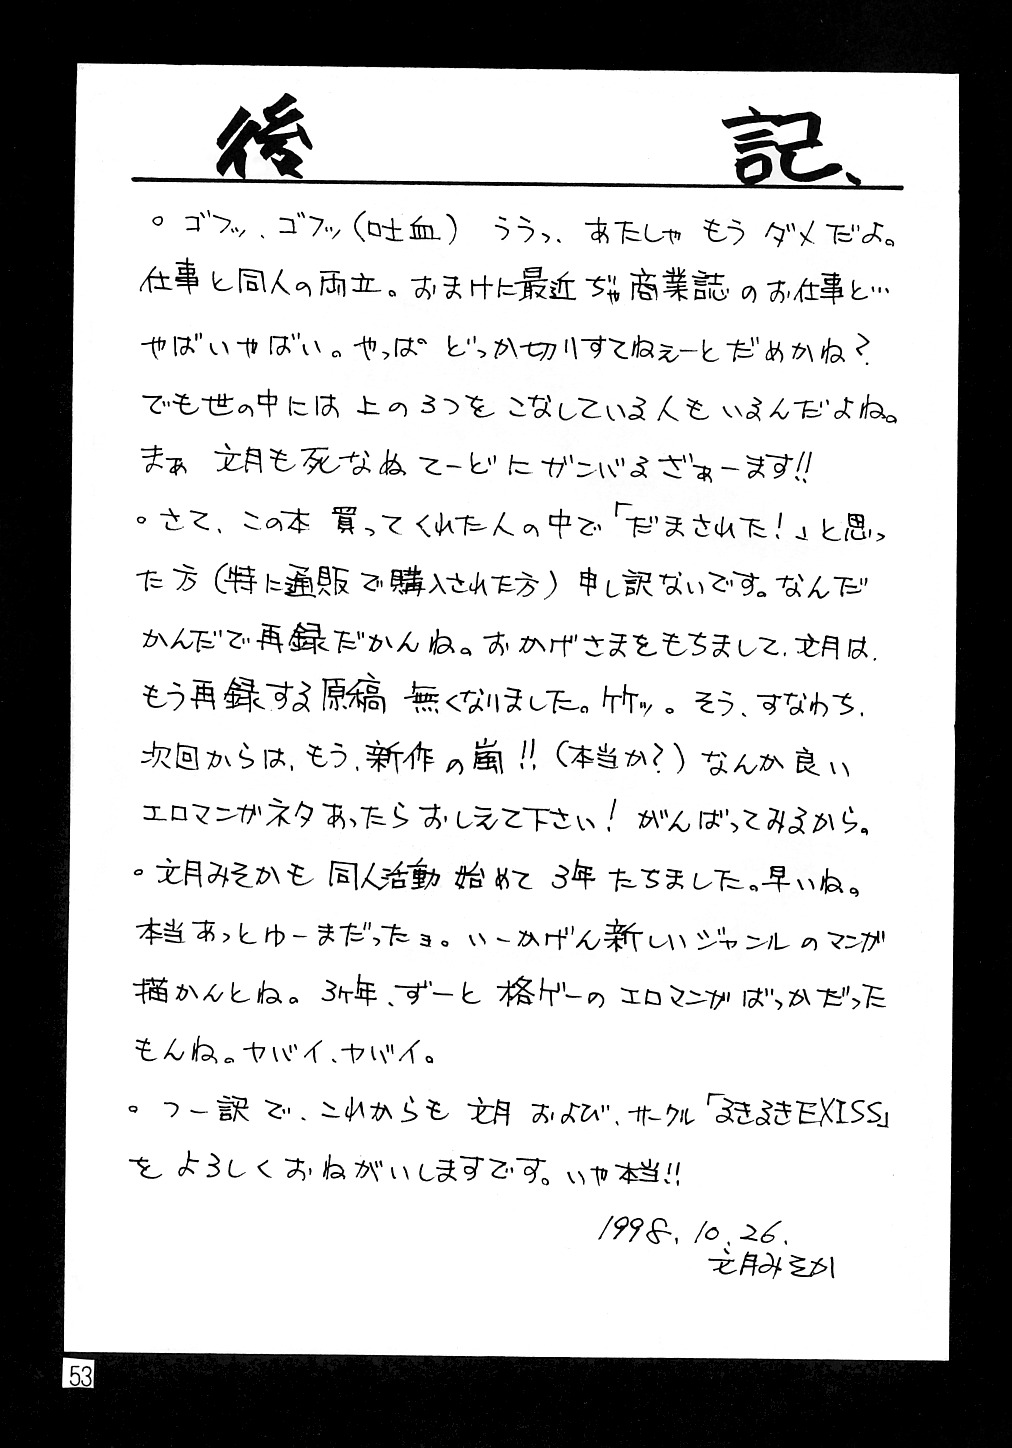 後記、
。ゴフッ、ゴフッ(吐血) ううっ、あたしゃもうダメだよ。
仕事と同人の両立。おまけに最近ぢゃ商業誌のお仕事と…
やばいやばい。やっぱ どっか切りすてねぇーとだめかね?
でも世の中には上の3つをこなしている人もいるんだよね。
まぁ 文月も死なぬてーどにガンバるざぁーます!!
。さて、この本買ってくれた人の中で「だまされた!」と思っ
た方(特に通販で購入された方)申し訳ないです。なんだ
かんだで再録だかんね。おかげさまをもちまして、文月は、
もう再録する原稿無くなりました。ケケッ。そう、すなわち、
次回からは、もう、新作の嵐!!(本当か?)なんか良い
エロマンガネタあったらおしえて下さい!がんばってみるから。
。文月みそかも同人活動始めて3年たちました。早いね。
本当あっとゆーまだったョ。いーかげん新しいジャンルのマンガ
描かんとね。3ヶ年、ずーと格ゲーのエロマンガばっかだった
もんね。ヤバイ、ヤバイ。
。つー訳で、これからも文月および、サークル「るきるきEXISS」
をよろしくおねがいしますです。いや本当!!
1998.10.26.
文月みそか
53